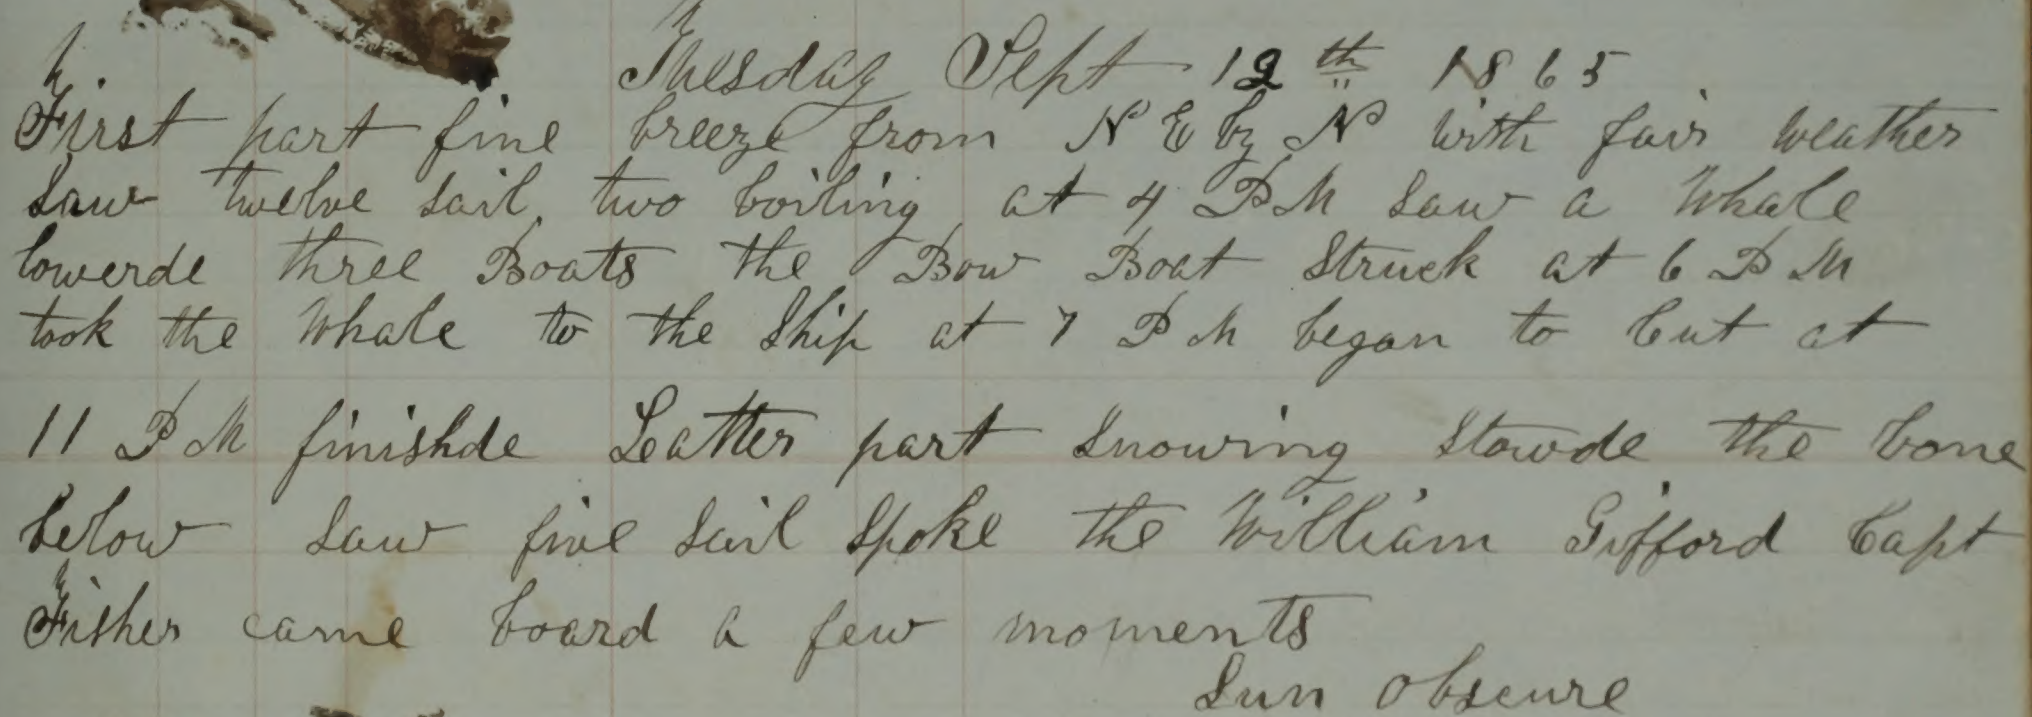 Tuesday Sept 12th 1865
First part fine breeze from N E by N with fair weather
Saw twelve sail, two boiling at 4 P M Saw a Whale
lowerde three Boats the Bow Boat Struck at 6 P M
took the Whale to the Ship at 7 P M began to Cut at
11 P M finishde Leatter part Snowing Stowde the bone
below Saw five Sail Spoke the William Gifford Capt
Fisher came board a few moments
Sun Obscure